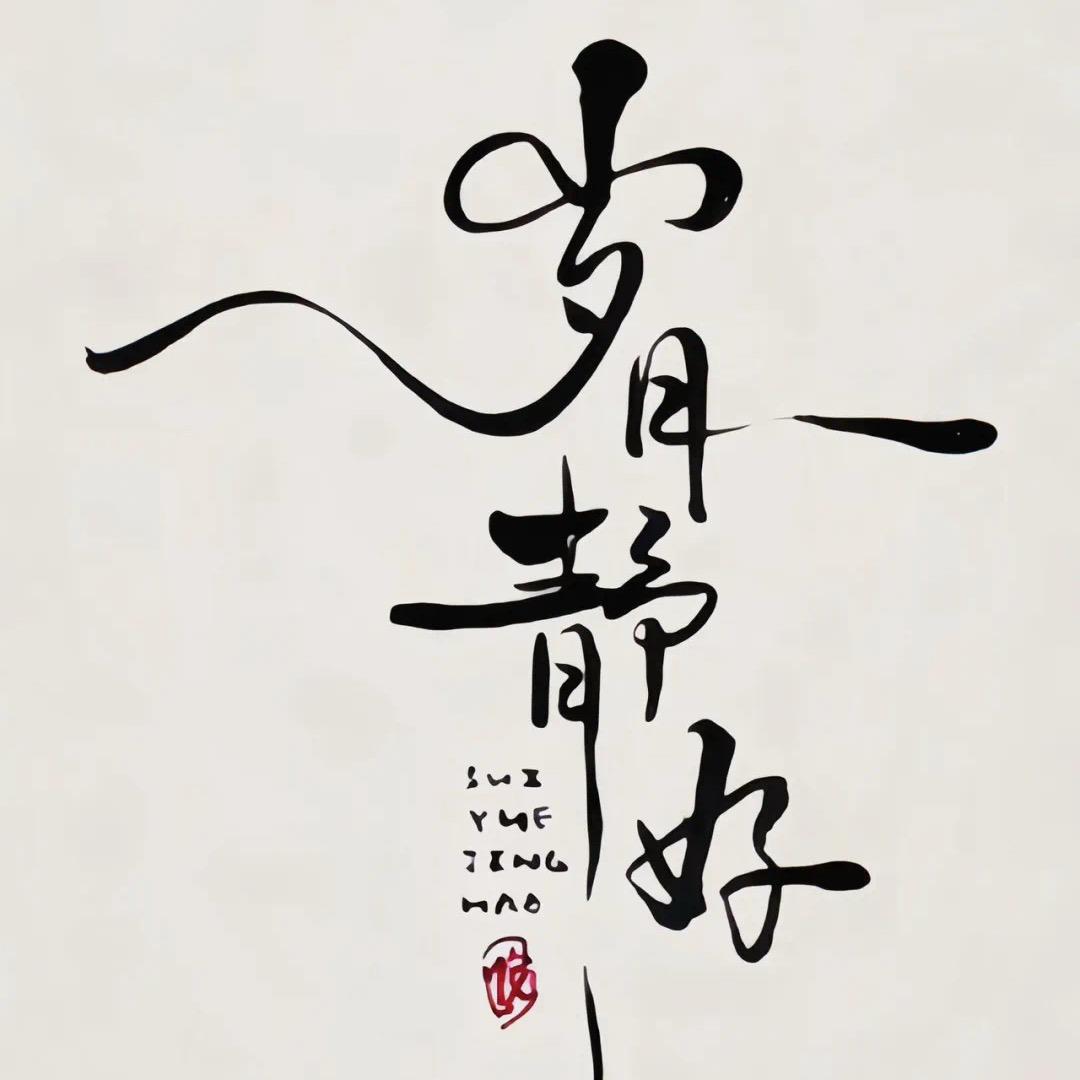 岁月静好
SUI
YUE
JING
HAO